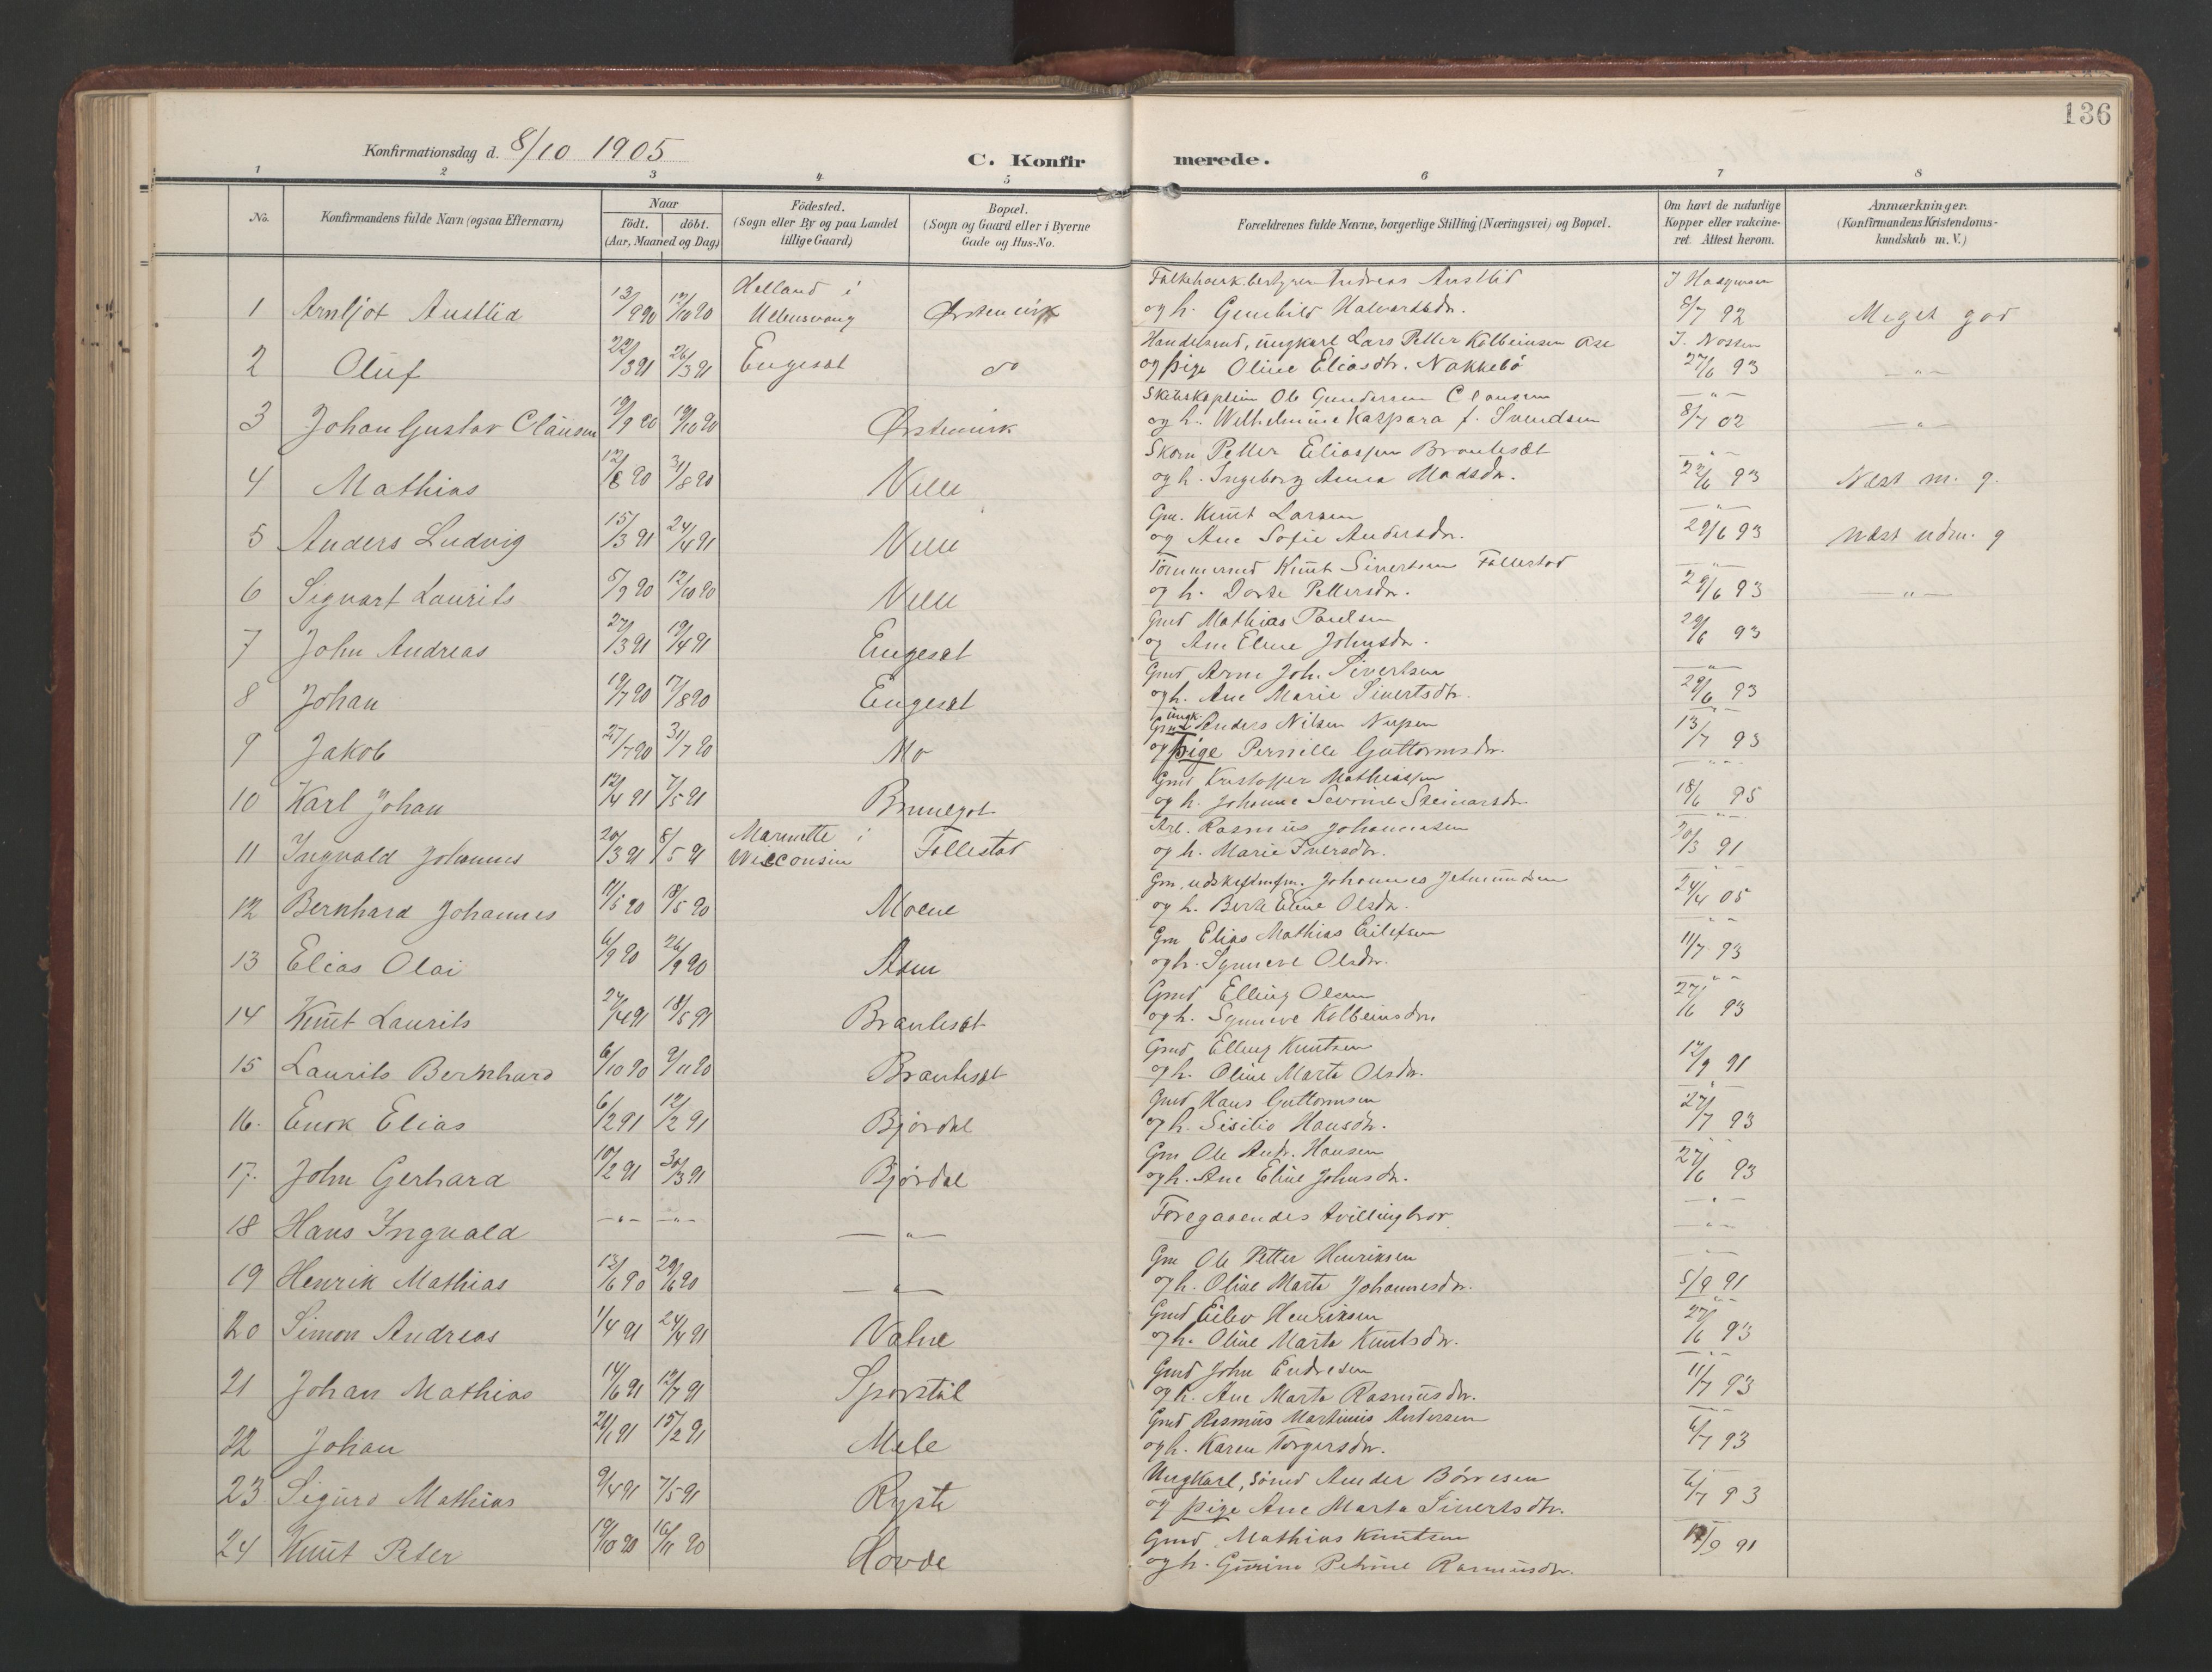 136
Konfirmationsdag d. 8/10 1905
C. Konfir merede.
1 2 3 4 5 6 7 8
No. Konfirmandens fulde Navn (ogsaa Efternavn) Naar født. døbt. (Aar, Maaned og Dag) Fødested. (Sogn eller By og paa Landet tillige Gaard) Bopæl. (Sogn og Gaard eller i Byerne Gade og Hus-No. Forældrenes fulde Navne, borgerlige Stilling (Næringsvei) og Bopæl. Om havt de naturlige Kopper eller vaccineret. Attest herom. Anmærkninger. (Konfirmandens Kristendomskundskab m. V.)
Helland i Andreas Austlid
1 Arnljot Austlid 13/9 90 12/10 90 Ullensvang Ørstenvik og h. Gunhild Halvardsdr. 8/7 92 Meget god
Handelsmd, ungkarl Lars Petter Kolbeinsen Ose
2 Oluf 22/3 91 26/3 91 Engeset do og pige Oline Eliasdtr. Nakkebø 27/6 93 — " —
Skibskaptein Ole Gundersen Clausen — " —
3 Johan Gustav Clausen 19/9 90 19/10 90 Ørstenvik og h. Wilhelmine Kaspara f. Svendsen 8/7 02 — " —
Skom. Petter Eliassen Brauteset — " —
4 Mathias 12/8 90 31/8 90 Velle og h. Ingeborg Anna Madsdr. 22/6 93 Næst m. g.
Gm. Knut Larsen — " —
5 Anders Ludvig 15/3 91 24/4 91 Velle og Ane Sofie Andersdr. 29/6 93 Næst udm. g
Tømmermd Knut Sivertsen Follestad — " —
6 Sigvart Laurits 5/9 90 12/10 90 Velle og h. Dorte Pettersdr. 29/6 93 — " —
Gmd Mathias Paulsen
7 John Andreas 27/3 91 19/4 91 Engeset og Ane Eline Johnsdr. 29/6 93
Gmd Arne Joh. Sivertsen — " —
8 Johan 19/7 90 17/8 90 Engeset og h. Ane Marie Sivertsdtr. 29/6 93
ungk. Anders Nilsen Nupen — " —
9 Jakob 27/7 90 31/7 90 Mo og pige Pernille Guttormsdr. 13/7 93
Gmd Kristoffer Mathiassen — " —
10 Karl Johan 12/4 91 7/5 91 Brunegot og h. Johanne Severine Steinarsdr. 18/6 95
Marinette i Arb. Rasmus Johannesen — " —
11 Ingvald Johannes 20/3 91 8/5 91 Wisconsin Follestad og h. Marie Iversdr. 30/3 91
Gm. udskiftm.fm. Johannes Jetmundsen
12 Bernhard Johannes 11/5 90 18/5 90 Moene og h. Berte Eline Olsdr. 24/4 05
Gm Elias Mathias Eilefsen — " —
13 Elias Olai 6/9 90 26/9 90 Aam og h. Synneve Olsdr. 11/7 93
Gmd Elling Olsen — " —
14 Knut Laurits 27/4 91 18/5 91 Brauteset og h. Synneve Kolbeinsdr. 27/6 93
Gmd Elling Knutsen
15 Laurits Bernhard 6/10 90 9/11 90 Brauteset og h. Oline Marte Olsdr. 12/9 91
Gmd Hans Guttormsen — " —
16. Enok Elias 6/2 91 12/2 91 Bjørdal og h. Sisilie Hansdr. 27/7 93
Gm Ole Andr. Hansen — " —
17. John Gerhard 10/2 91 30/3 91 Bjørdal og h. Ane Eline Johnsdr. 27/6 93
— " —
18 Hans Ingvald — " — — " — — " — Foregaaendes tvillingbror — " —
Gm Ole Petter Henriksen — " —
19 Henrik Mathias 12/6 90 29/6 90 — " — og h. Oline Marte Johannesdr. 5/9 91
Gmd Eilev Henriksen — " —
20 Simon Andreas 1/4 91 24/4 91 Vatne og h. Oline Marte Knutsdr. 27/6 93
Gmd John Endresen — " —
21 Johan Mathias 14/6 91 12/7 91 Sporstøl og h. Ane Marte Rasmusdr. 11/7 93
Gmd Rasmus Martinus Andersen — " —
22 Johan 21/1 91 15/2 91 Mele og h. Karen Torgersdr. 6/7 93
Ungkarl, sømd Ander Børresen — " —
23 Sigurd Mathias 9/4 91 7/5 91 Ryste og pige Ane Marta Sivertsdtr. 6/7 93
Gmd Mathias Knutsen — " —
24 Knut Peter 19/10 90 16/11 90 Hovde og h. Gurine Petrine Rasmusdr. 12/9 91